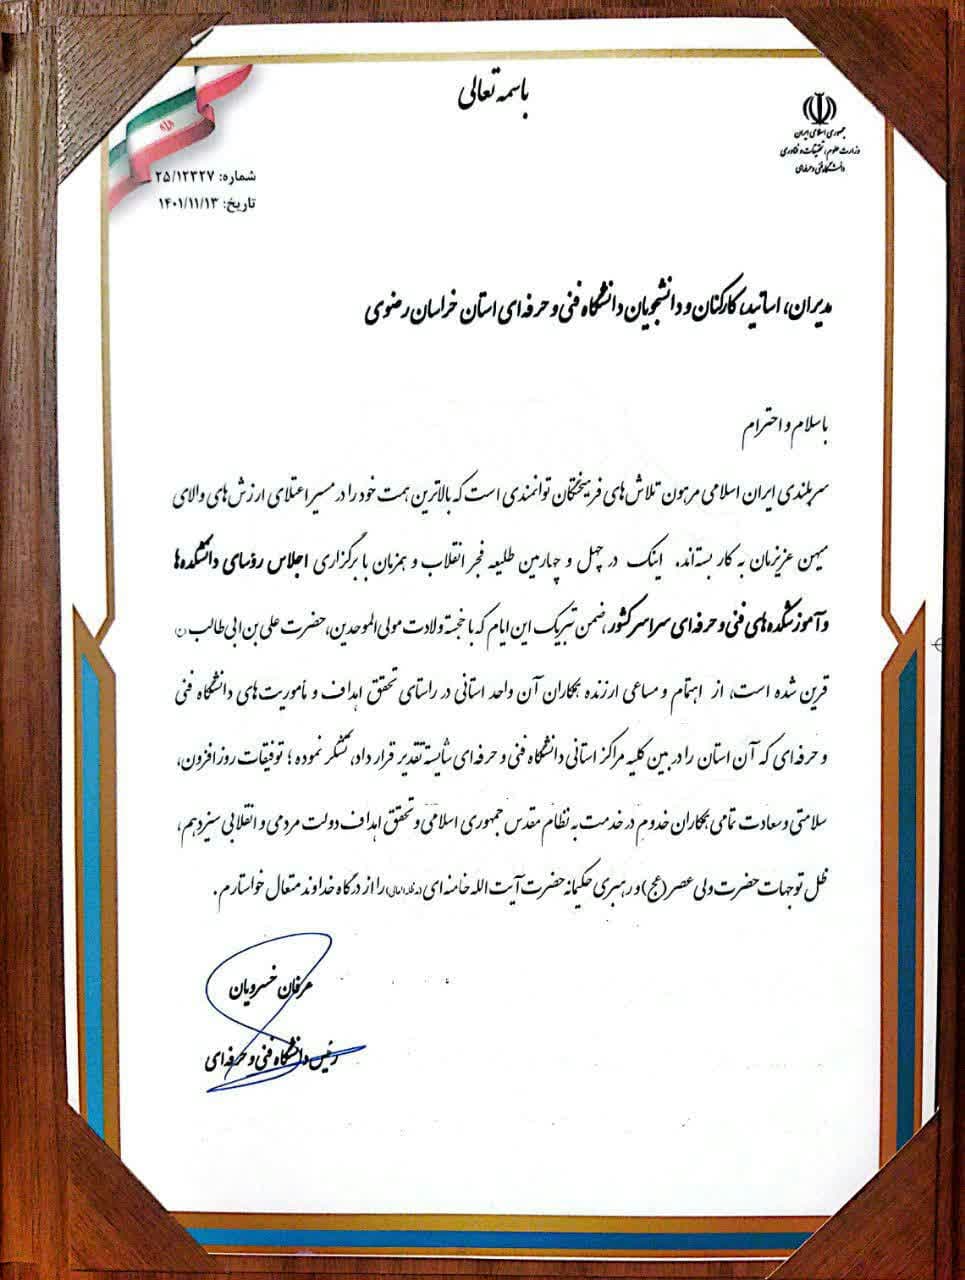 باسمه تعالی
جمهوری اسلامی ایران
وزارت علوم، تحقیقات و فناوری
دانشگاه فنی و حرفه‌ای
شماره: ۲۵/۱۲۳۲۷
تاریخ: ۱۴۰۱/۱۱/۱۳
مدیران، اساتید، کارکنان و دانشجویان دانشگاه فنی و حرفه‌ای استان خراسان رضوی
با سلام و احترام
سربلندی ایران اسلامی مرهون تلاش‌های فرهیختگان توانمندی است که بالاترین همت خود را در مسیر اعتلای ارزش‌های والای
میهن عزیزمان به کار بسته‌اند. اینک در چهل و چهارمین طلیعه فجر انقلاب و همزمان با برگزاری اجلاس رؤسای دانشکده‌ها
و آموزشکده‌های فنی و حرفه‌ای سراسر کشور، ضمن تبریک این ایام که با خجسته ولادت مولی الموحدین، حضرت علی بن ابی طالب
قرین شده است، از اهتمام و مساعی ارزنده همکاران آن واحد استانی در راستای تحقق اهداف و مأموریت‌های دانشگاه فنی
و حرفه‌ای که آن استان را در بین کلیه مراکز استانی دانشگاه فنی و حرفه‌ای شایسته تقدیر قرار داد، تشکر نموده؛ توفیقات روزافزون،
سلامتی و سعادت تمامی همکاران خدوم در خدمت به نظام مقدس جمهوری اسلامی و تحقق اهداف دولت مردمی و انقلابی سیزدهم،
ظل توجهات حضرت ولی عصر (عج) و رهبری حکیمانه حضرت آیت الله خامنه‌ای (مدظله العالی) را از درگاه خداوند متعال خواستارم.
عرفان خسرویان
رئیس دانشگاه فنی و حرفه‌ای